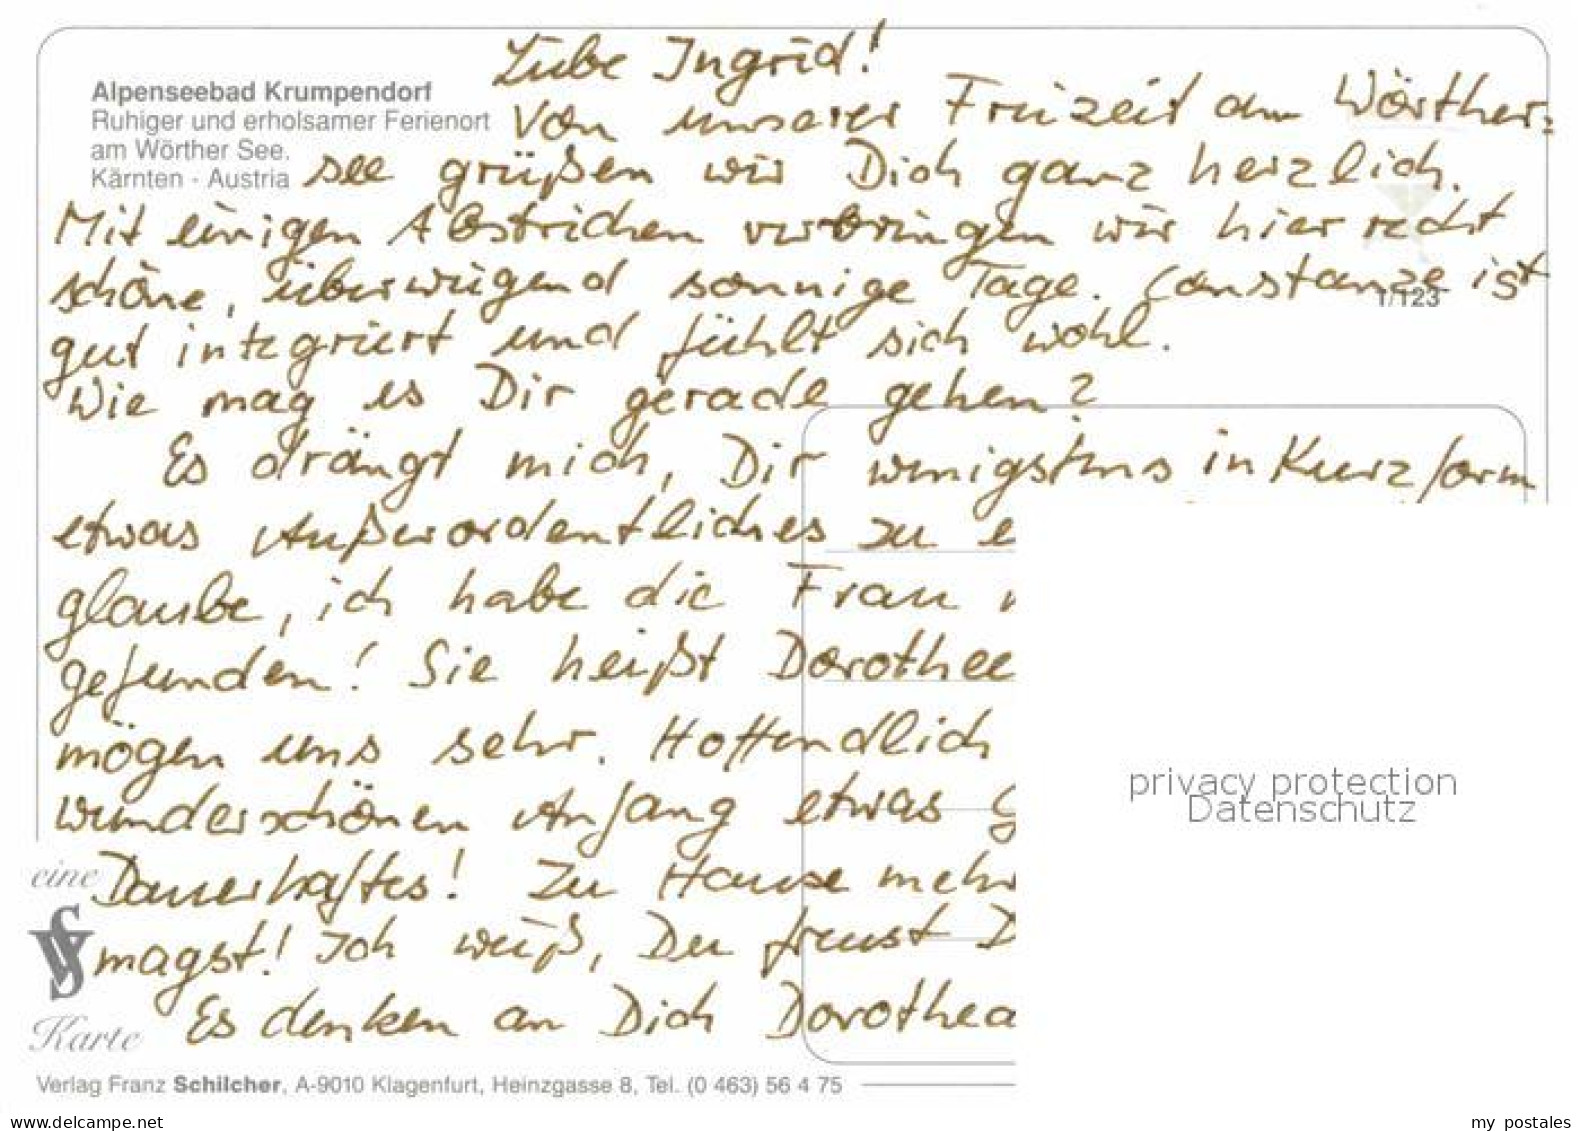 Liebe Ingrid!
Alpenseebad Krumpendorf
Ruhiger und erholsamer Ferienort
am Wörther See.
Kärnten - Austria
Von unserer Freizeit am Wörther-
see grüßen wir Dich ganz herzlich.
Mit einigen Abstrichen verbringen wir hier recht
schöne, überwiegend sonnige Tage. Constanze ist
1/123
gut integriert und fühlt sich wohl.
Wie mag es Dir gerade gehen?
Es drängt mich, Dir wenigstens in Kurzform
etwas Außerordentliches zu e
glaube, ich habe die Frau
gefunden! Sie heißt Dorothee
mögen uns sehr. Hoffendlich
wunderschönen Anfang etwas G
Dauerhaftes! Zu Hause mehr
magst! Ich weiß, Du freust D
Es denken an Dich Dorothea
privacy protection
Datenschutz
eine
VS
Karte
Verlag Franz Schilcher, A-9010 Klagenfurt, Heinzgasse 8, Tel. (0 463) 56 4 75
www.delcampe.net
my postales